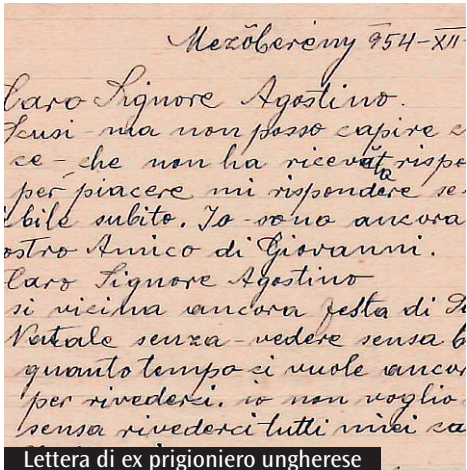 Mezőberény 954-XII-
Caro Signore Agostino.
Scusi - ma non posso capire
ce - che non ha ricevuto rispo
per piacere mi rispondere se
ibile subito. Io - sono ancora
ostro Amico di Giovanni.
Caro Signore Agostino
si vicina ancora festa di
Natale senza - vedere sensa
quanto tempo ci vuole ancor
per rivederci. io non voglio
sensa rivederci tutti miei ca
Lettera di ex prigioniero ungherese